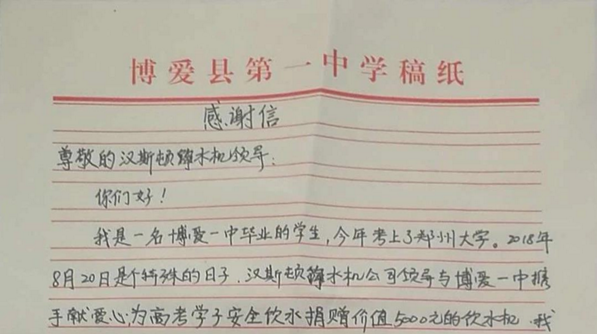 博爱县第一中学稿纸
感谢信
尊敬的汉斯顿净水机领导：
你们好！
我是一名博爱一中毕业的学生，今年考上了郑州大学。2018年
8月20日是个特殊的日子，汉斯顿净水机公司领导与博爱一中携
手献爱心，为高考学子安全饮水捐赠价值5000元的饮水机，我